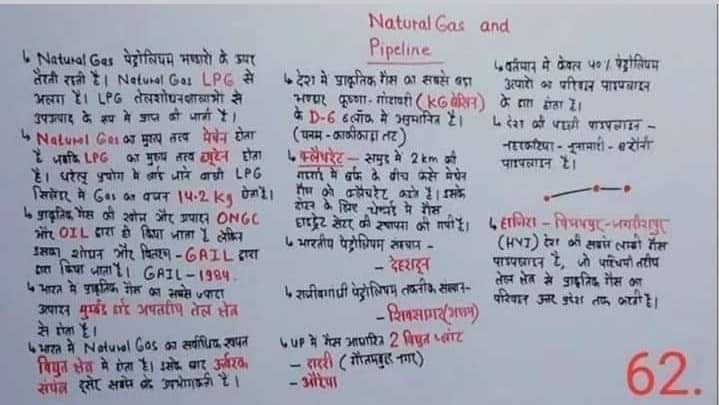 Natural Gas and
Pipeline
↳ Natural Gas पेट्रोलियम भण्डारों के उपर
तैरती रहती है। Natural Gas LPG से
अलग है। LPG तेलशोधनशालाओं से
उपउत्पाद के रूप में प्राप्त की जाती है।
↳ Natural Gas का मुख्य तत्व मेथेन होता
है जबकि LPG का मुख्य तत्व ब्यूटेन होता
है। घरेलू प्रयोग में लाई जाने वाली LPG
सिलेंडर में Gas का वजन 14.2 Kg होता है।
↳ प्राकृतिक गैस की खोज और उत्पादन ONGC
और OIL द्वारा ही किया जाता है लेकिन
इसका शोधन और वितरण - GAIL द्वारा
किया जाता है। GAIL - 1984.
↳ भारत में प्राकृतिक गैस का सबसे ज्यादा
उत्पादन मुम्बई हाई अपतटीय तेल क्षेत्र
से होता है।
↳ भारत में Natural Gas का सर्वाधिक खपत
विद्युत क्षेत्र में होता है। इसके बाद उर्वरक
संयंत्र दूसरे सबसे बड़े उपभोगकर्ता है।
↳ देश में प्राकृतिक गैस का सबसे बड़ा
भण्डार कृष्णा-गोदावरी (KG बेसिन)
के D-6 ब्लॉक में अनुमानित है।
(यनम - काकीनाडा तट)
↳ क्लैथरेट - समुद्र में 2 km की
गहराई में बर्फ के बीच फंसे मेथेन
गैस को क्लैथरेट कहते है। इसके
दोहन के लिए चेन्नई में गैस
हाइड्रेट सेंटर की स्थापना की गयी है।
↳ भारतीय पेट्रोलियम संस्थान -
- देहरादून
↳ राजीवगांधी पेट्रोलियम तकनीक संस्थान -
- शिवसागर (असम)
↳ UP में गैस आधारित 2 विद्युत प्लांट
- दादरी (गौतमबुद्ध नगर)
- औरैया
↳ वर्तमान में केवल 40% पेट्रोलियम
उत्पादों का परिवहन पाइपलाइन
के द्वारा होता है।
↳ देश की पहली पाइपलाइन -
नहरकटिया - नूनामाटी - बरौनी
पाइपलाइन है।
↳ हाजिरा - विजयपुर - जगदीशपुर
(HVJ) देश की सबसे लम्बी गैस
पाइपलाइन है, जो पश्चिमी तटीय
तेल क्षेत्र से प्राकृतिक गैस का
परिवहन उत्तर प्रदेश तक करती है।
62.